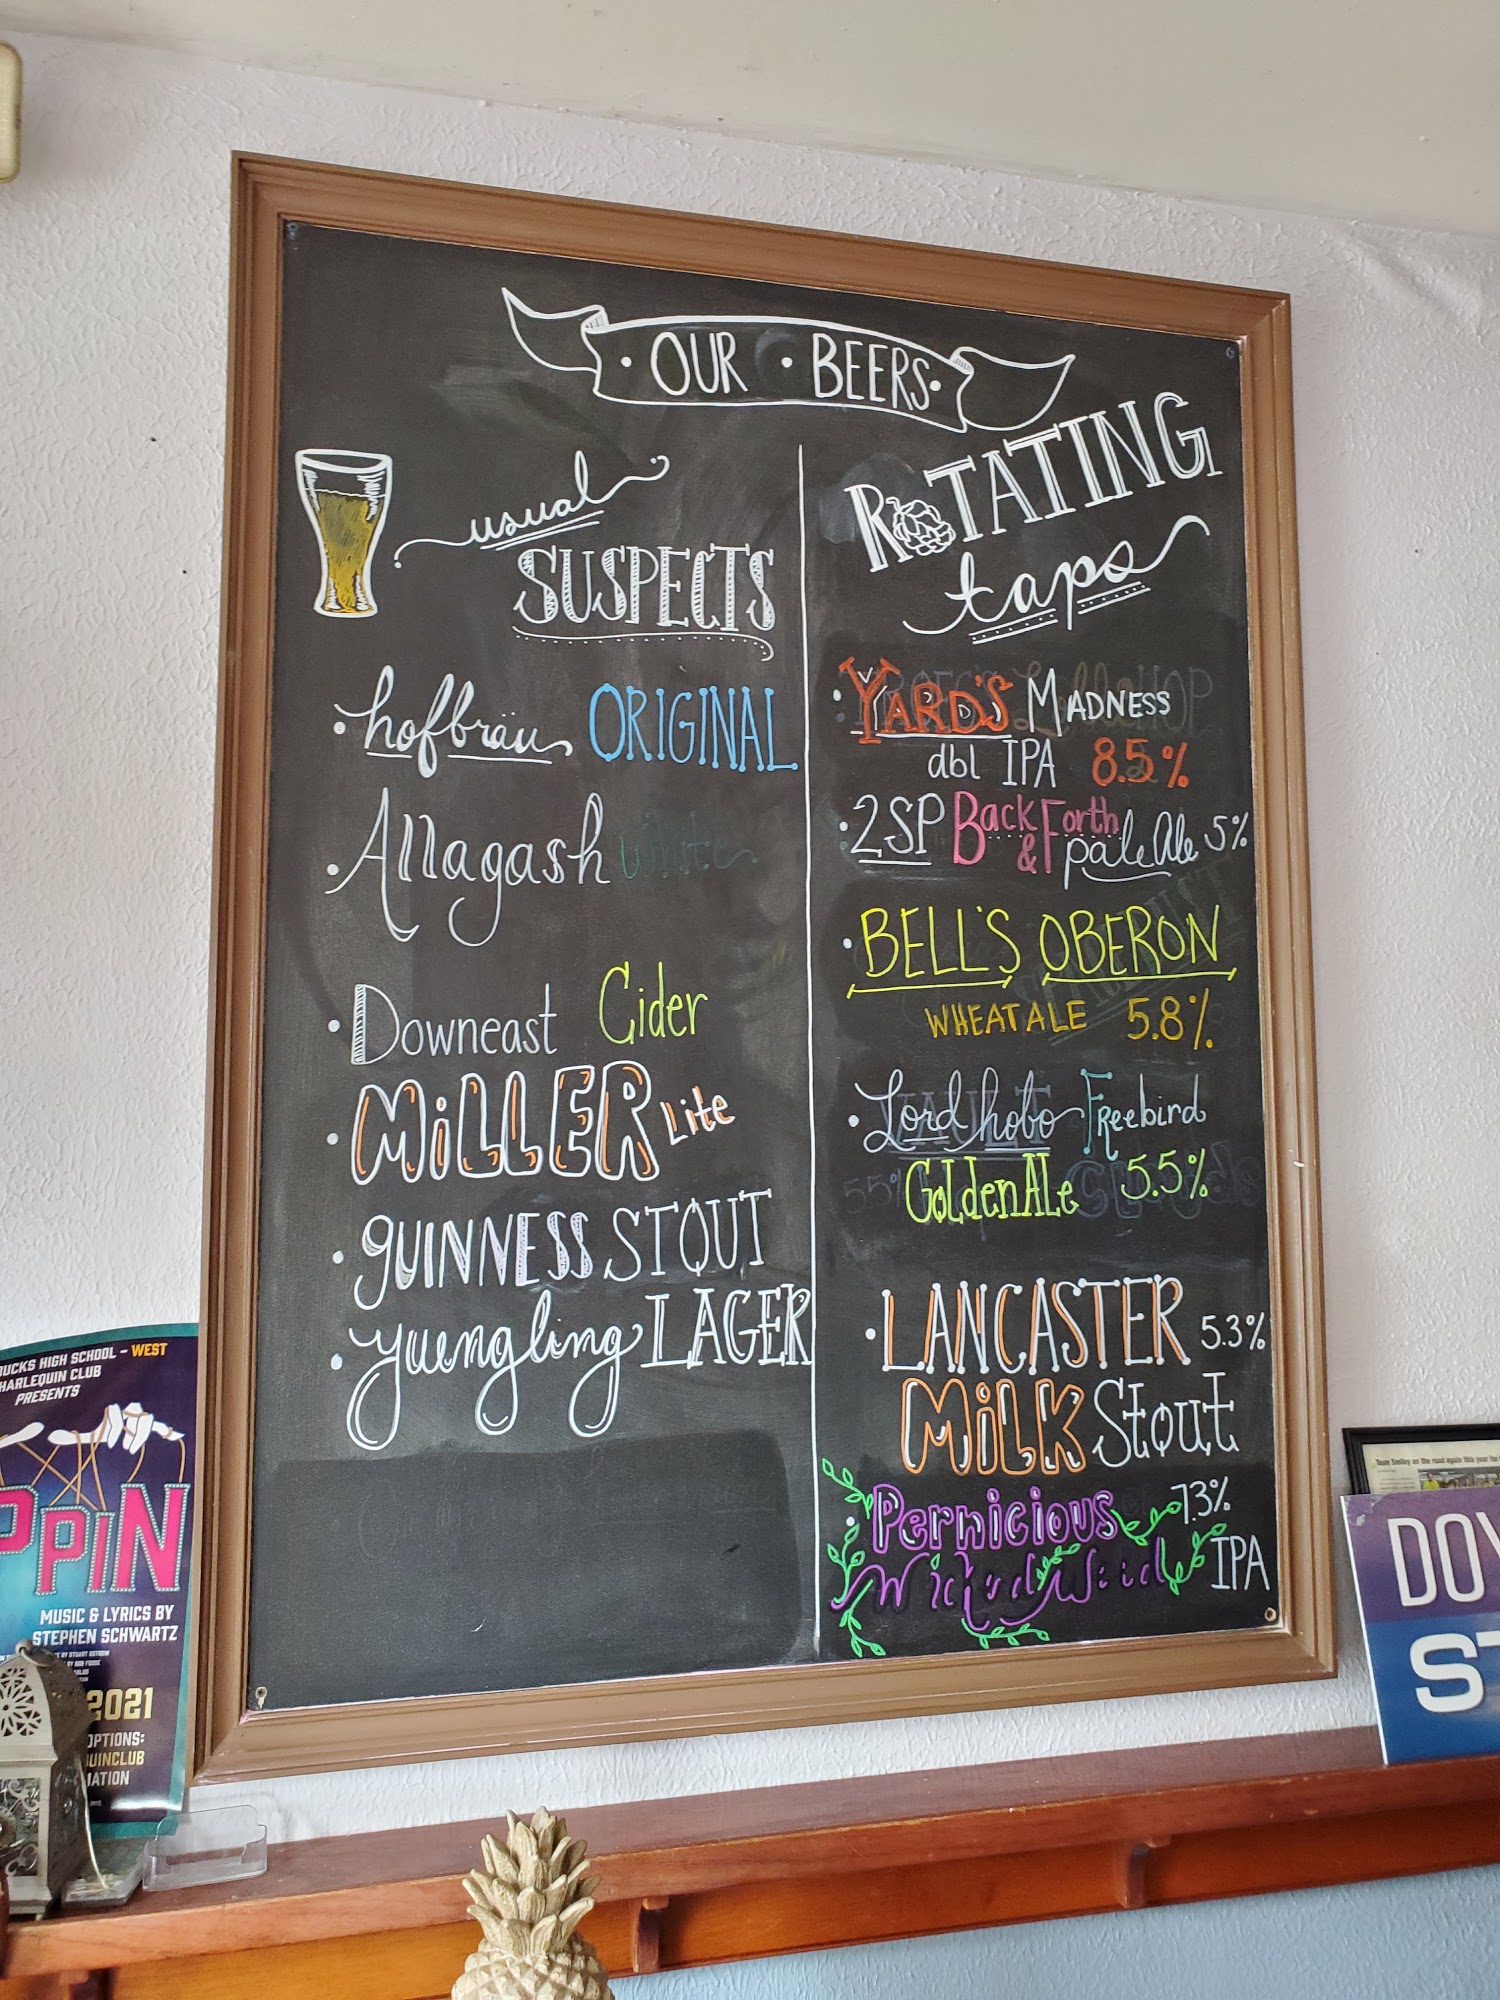 OUR BEERS
usual
SUSPECTS
hofbräu ORIGINAL
Allagash White
Downeast Cider
MiLLER Lite
GUINNESS STOUT
yuengling LAGER
ROTATING
taps
YARD'S MADNESS
dbl IPA 8.5%
2SP Back & Forth pale Ale 5%
BELL'S OBERON
WHEAT ALE 5.8%
Lord hobo Freebird
Golden Ale 5.5%
LANCASTER 5.3%
MiLK Stout
Pernicious 7.3%
Wicked Weed IPA
BUCKS HIGH SCHOOL - WEST
HARLEQUIN CLUB
PRESENTS
PPIN
MUSIC & LYRICS BY
STEPHEN SCHWARTZ
2021
OPTIONS:
Team Smiley on the road again this year for
DOY
ST